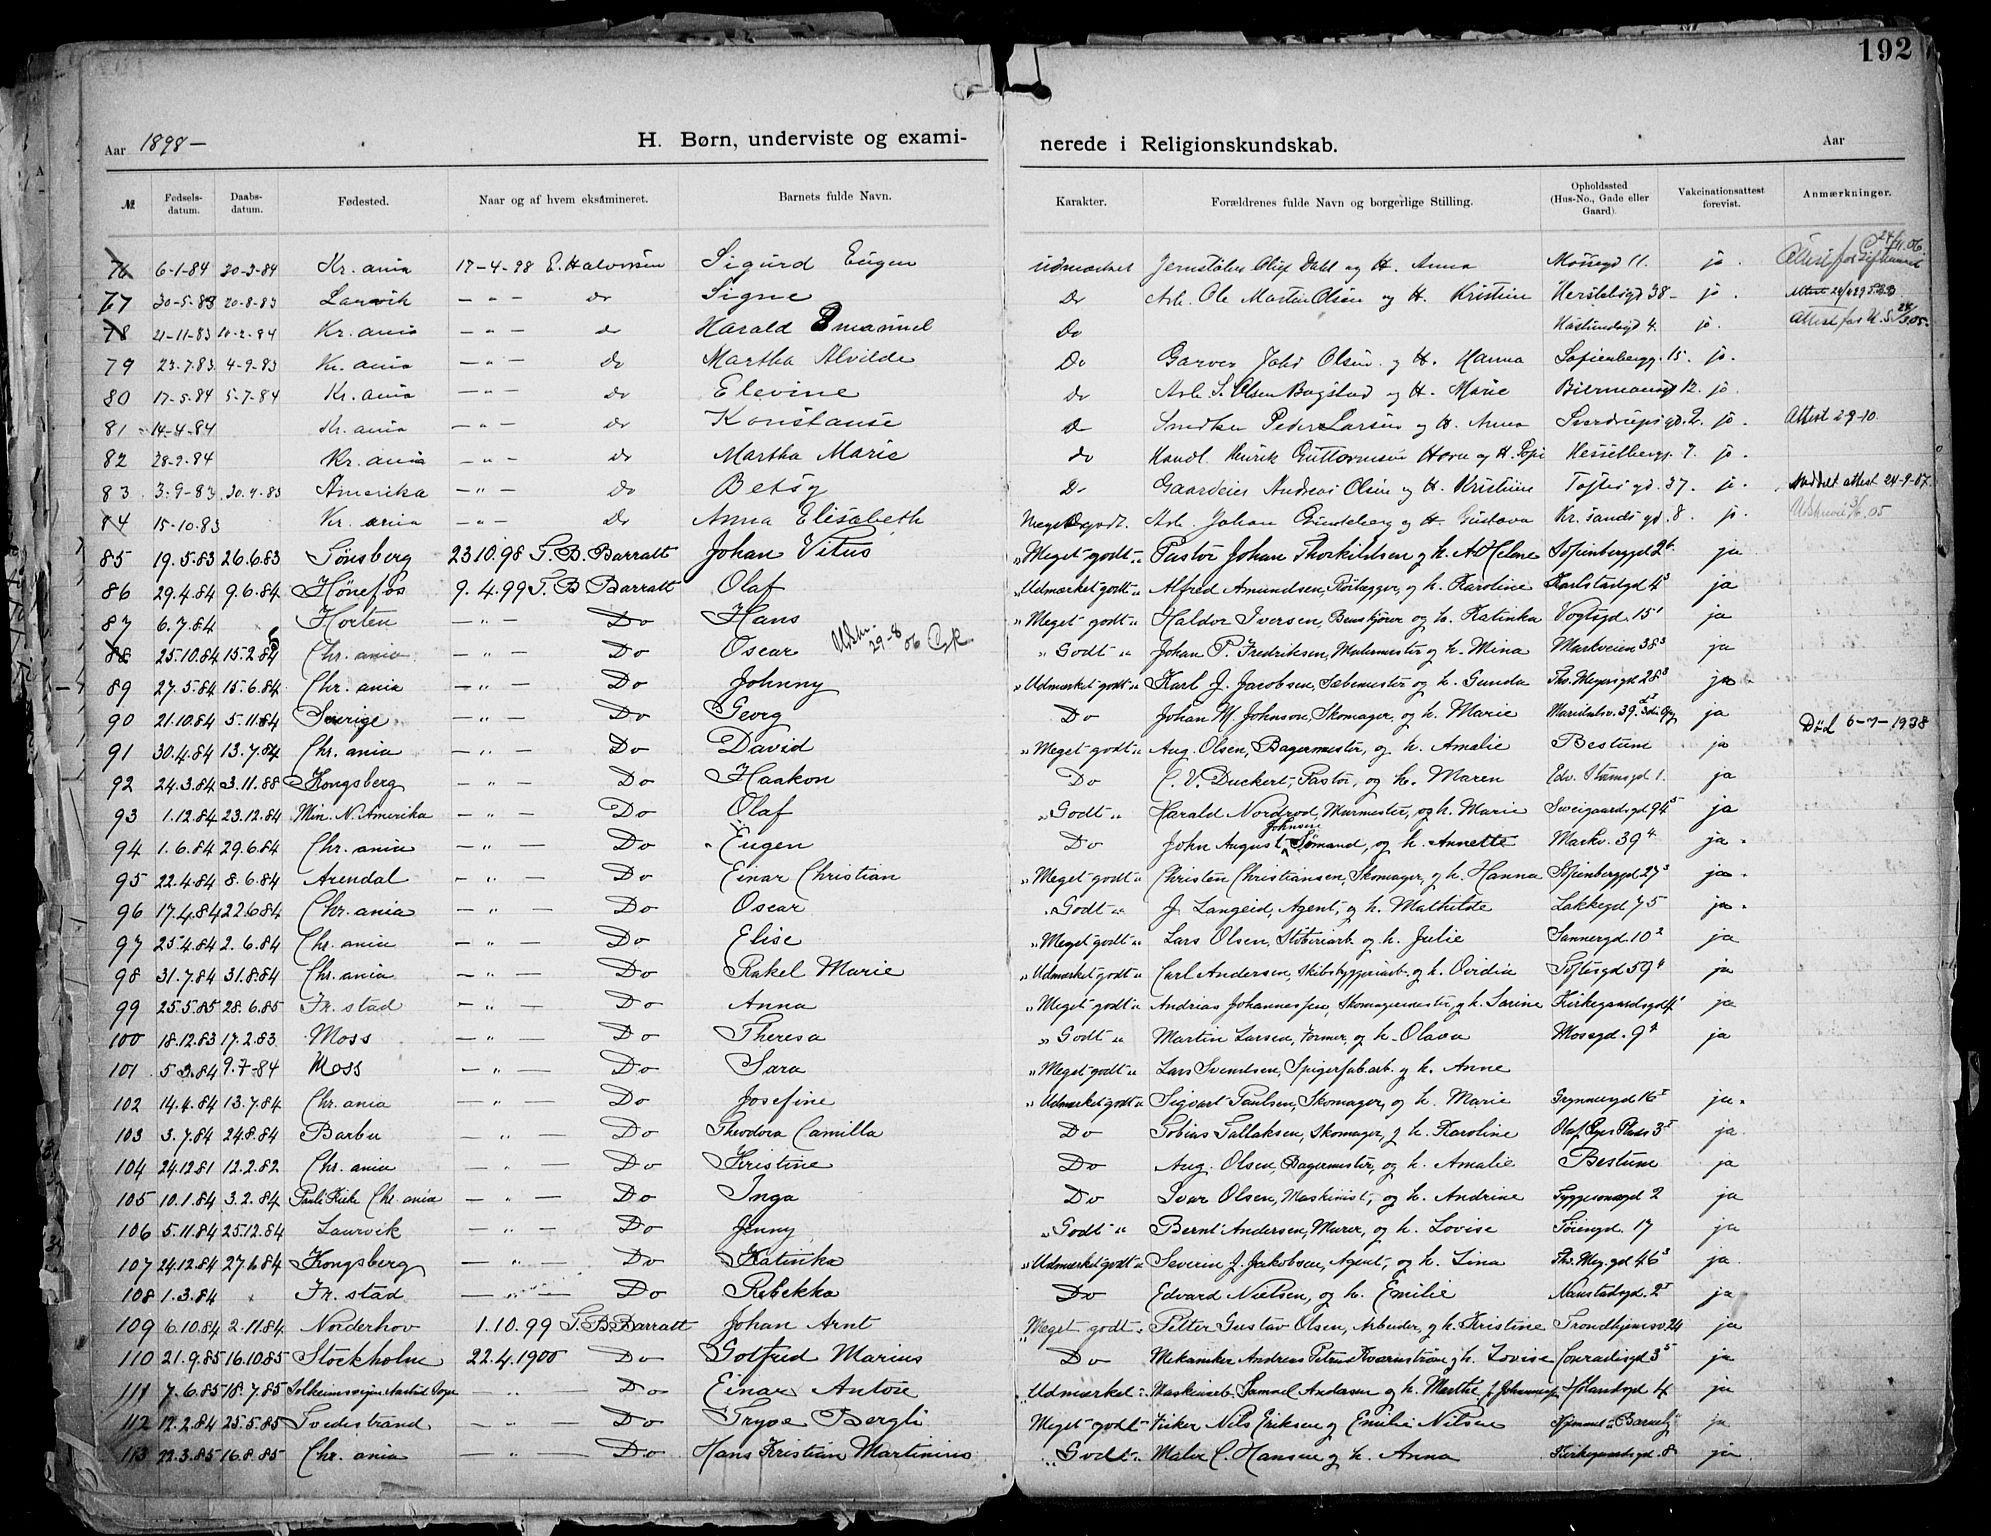 192
Aar 1898 – H. Børn, underviste og exami- nerede i Religionskundskab. Aar
№ Fødsels-datum. Daabs-datum. Fødested. Naar og af hvem eksamineret. Barnets fulde Navn. Karakter. Forældrenes fulde Navn og borgerlige Stilling. Opholdssted (Hus-No., Gade eller Gaard). Vakcinationsattest forevist. Anmærkninger.
76 6-1-84 30-3-84 Kr. ania 17-4-98 E. Halvorsen Sigurd Eugen udmærket Olaf Dahl og H. Anna Mossegd 11. jo.
77 30-5-83 20-8-83 Larvik – " – do Signe Do Arb. Ole Martin Olsen og H. Kristine Herslebsgd 38 – jo.
78 21-11-83 10-2-84 Kr. ania – " – do Harald Emanuel Do 4. jo. Attest for
79 23-7-83 4-9-83 Kr. ania – " – do Martha Alvilde Do Garver Olsen og H. Hanna Sofienbergg. 15. jo.
80 17-5-84 5-7-84 Kr. ania – " – do Elevine do Arb. S. Olsen Bogstad og H. Marie 12. jo.
81 14-4-84 Kr. ania – " – do Konstanse do Snedker Peder Larsen og H. Anna Sverdrupsgd. 2. jo. Attest 2-9-10.
82 28-2-84 Kr. ania – " – do Martha Marie do Handl. Henrik Guttormsen Horn og H. Hesselbergg. 7. jo.
83 3-9-83 30.4-83 Amerika – " – do Betsy Do Gaardeier Andreas Olsen og H. Kristine Toftesgd. 37. jo. attest 24-9-07.
84 15-10-83 Kr. ania – " – do Anna Elisabeth Meget godt. Arb. Johan og H. Gustava Kr. sandsgd. 8. jo.
85 19.5.83 26.6.83 Tønsberg 23.10.98 T. B. Barratt Johan Vitus "Meget godt" Pastor Johan Thorkildsen og h. Sofienberggd 2 ja
86 29.4.84 9.6.84 Hønefos 9.4.99 T. B. Barratt Olaf "Udmærket godt" Alfred Amundsen, Rørlægger, og h. Karoline Karlstadgd 4 ja
87 6.7.84 Horten – " – Do Hans "Meget godt" Haldor Iversen, og h. Katinka Vogtsgd. 15 ja
88 25.10.84 15.2.85 Chr. ania – " – Do Oscar 29-8 06 "Godt" Johan P. Fredriksen, Malermester og h. Mina Markveien 38³ ja
89 27.5.84 15.6.84 Chr. ania – " – Do Johnny "Udmærket godt" Karl J. Jacobsen, Sæbemester og h. Gunda Th. Meyersgd 28³ ja
90 21.10.84 5.11.84 Sverige – " – Do Georg Do Johan M. Johnson, Skomager, og h. Marie Maridalsv. 39 ja
91 30.4.84 13.7.84 Chr. ania – " – Do David "Meget godt" Aug. Olsen, Bagermester, og h. Amalie Bestum ja Død 6–7–1938
92 24.3.84 3.11.88 Kongsberg – " – Do Haakon Do C. V. Duckert, Pastor, og h. Maren Edv. Stormsgd 1. ja
93 1.12.84 23.12.84 Min. N. Amerika – " – Do Olaf "Godt" Harald Nordrod, Murmester, og h. Marie Sveigaardsgd 94⁵ ja
94 1.6.84 29.6.84 Chr. ania – " – Do Eugen Do John August Johnsen Sømand, og h. Annette Markv. 39⁴ ja
95 22.4.84 8.6.84 Arendal – " – Do Einar Christian "Meget godt" Christen Christiansen, Skomager, og h. Hanna Sofienberggd 27³ ja
96 17.4.84 22.6.84 Chr. ania – " – Do Oscar "Godt" J. Langeid, Agent, og h. Mathilde Lakkegd 75 ja
97 25.4.84 2.6.84 Chr. ania – " – Do Elise "Meget godt" Lars Olsen, Støberiarb. og h. Julie Sannergd. 10² ja
98 31.7.84 31.8.84 Chr. ania – " – Do Rakel Marie "Udmærket godt" Carl Andersen, Skibsbyggeriarb. og h. Ovidia Toftesgd 59⁴ ja
99 25.5.85 28.6.85 Fr. stad – " – Do Anna "Meget godt" Andrias Johannessen, Skomagermester, og h. Sarine Kirkegaardsgd 4 ja
100 18.12.83 17.2.83 Moss – " – Do Theresa "Godt" Martin Larsen, Former, og h. Olava Mossgd. 9 ja
101 5-3.84 9.7-84 Moss – " – Do Sara "Meget godt" Lars Svendsen, Spigerfab.arb. og h. Anne
102 14.4.84 13.7.84 Chr. ania – " – Do Josefine "Udmærket godt" Sigvart Paulsen, Skomager, og h. Marie Grynnergd 16 ja
103 3.7.84 24.8.84 Barbu – " – Do Theodora Camilla Do Tobias Tallaksen, Skomager, og h. Karoline Olaf Ryes Plads 3 ja
104 24.12.81 12.2.82 Chr. ania – " – Do Kristine Do Aug. Olsen, Bagermester, og h. Amalie Bestum ja
105 10.1.84 3.2.84 Pauli Kirke Chr. ania – " – Do Inga Do Ivar Olsen, Maskinist, og h. Andrine 2 ja
106 5.11.84 25.12.84 Laurvik – " – Do Jenny "Godt" Bernt Andersen, Murer, og h. Lovise Tøiengd. 17 ja
107 24.12.84 27.1.84 Kongsberg – " – Do Katinka "Udmærket godt" Severin J. Jakobsen, Agent, og h. Lina Th. Mey. gd 46³ ja
108 1.3.84 Fr. stad – " – Do Rebekka Do Edvard Nielsen, og h. Emilie Nannstadgd. 2 ja
109 6.10.84 2.11.84 Norderhov 1.10.99 T. B. Barratt Johan Arnt "Meget godt" Petter Gustav Olsen, Arbeider, og h. Kristine Trondhjemsv. 24 ja
110 21.9.85 16.10.85 Stockholm 22.4.1900 Do Gotfred Marius Do Mekaniker Andreas og h. Lovise Conradisgd 3⁵ ja
111 7.6.85 18.7.85 – " – Do Einar Antore "Udmærket" Samuel Andersen og h. Marthe Holandsgd 4 ja
112 12.2.84 25.5.85 Tvedestrand – " – Do Trygve Bergli Meget godt Nils Eriksen og Emilie Nilsen Hjemmet ja
113 22.3.85 16.8.85 Chr. ania – " – Do Hans Kristian Martinius "Godt" Maler C. Hansen og h. Anna Kirkegaardsgd. 8 ja